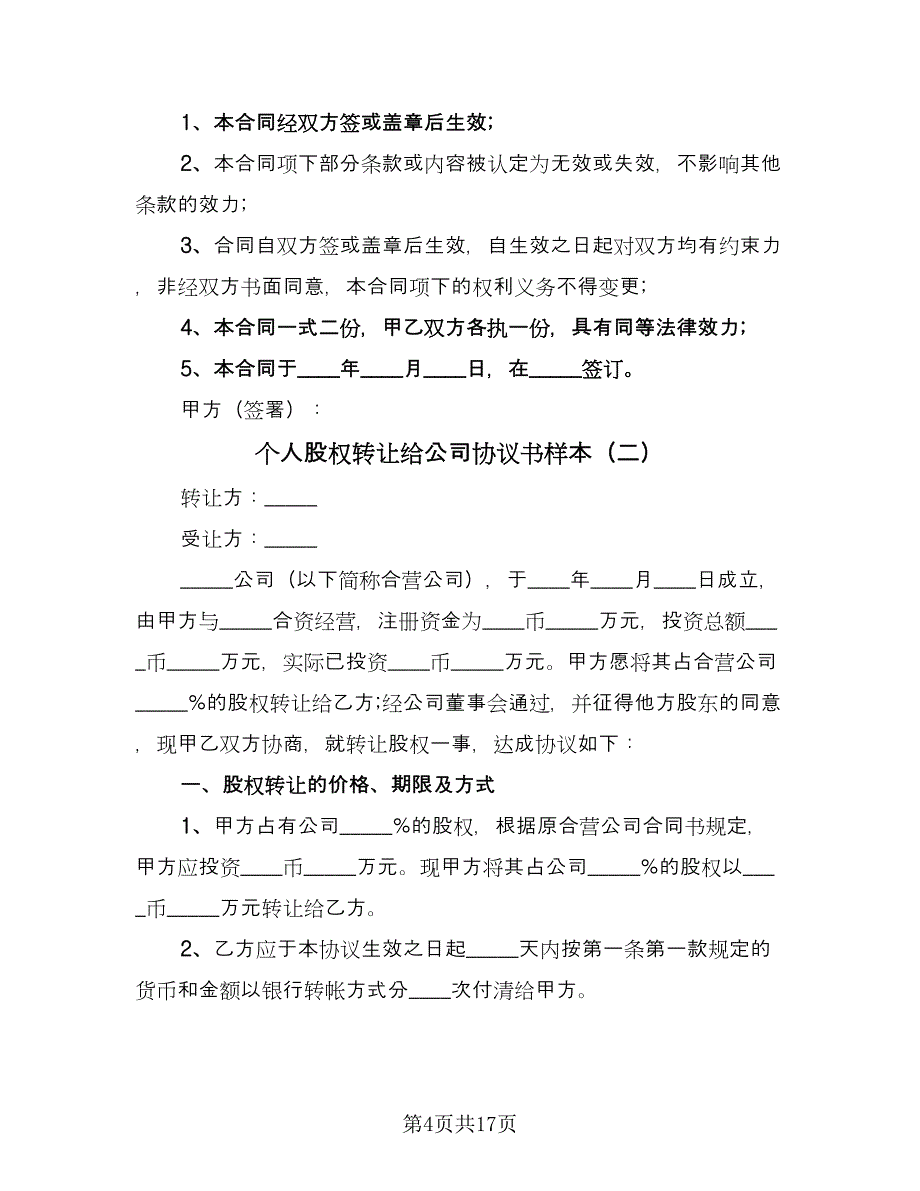 1、本合同经双方签或盖章后生效；
2、本合同项下部分条款或内容被认定为无效或失效，不影响其他
条款的效力；
3、合同自双方签或盖章后生效，自生效之日起对双方均有约束力
，非经双方书面同意，本合同项下的权利义务不得变更；
4、本合同一式二份，甲乙双方各执一份，具有同等法律效力；
5、本合同于____年____月____日，在_____签订。
甲方（签署）：
个人股权转让给公司协议书样本（二）
转让方：_____
受让方：_____
_____公司（以下简称合营公司），于____年____月____日成立，
由甲方与_____合资经营，注册资金为____币_____万元，投资总额___
_币_____万元，实际已投资____币_____万元。甲方愿将其占合营公司
_____%的股权转让给乙方;经公司董事会通过，并征得他方股东的同意
，现甲乙双方协商，就转让股权一事，达成协议如下：
一、股权转让的价格、期限及方式
1、甲方占有公司_____%的股权，根据原合营公司合同书规定，
甲方应投资____币_____万元。现甲方将其占公司_____%的股权以___
_币_____万元转让给乙方。
2、乙方应于本协议生效之日起_____天内按第一条第一款规定的
货币和金额以银行转帐方式分____次付清给甲方。
第4页共17页